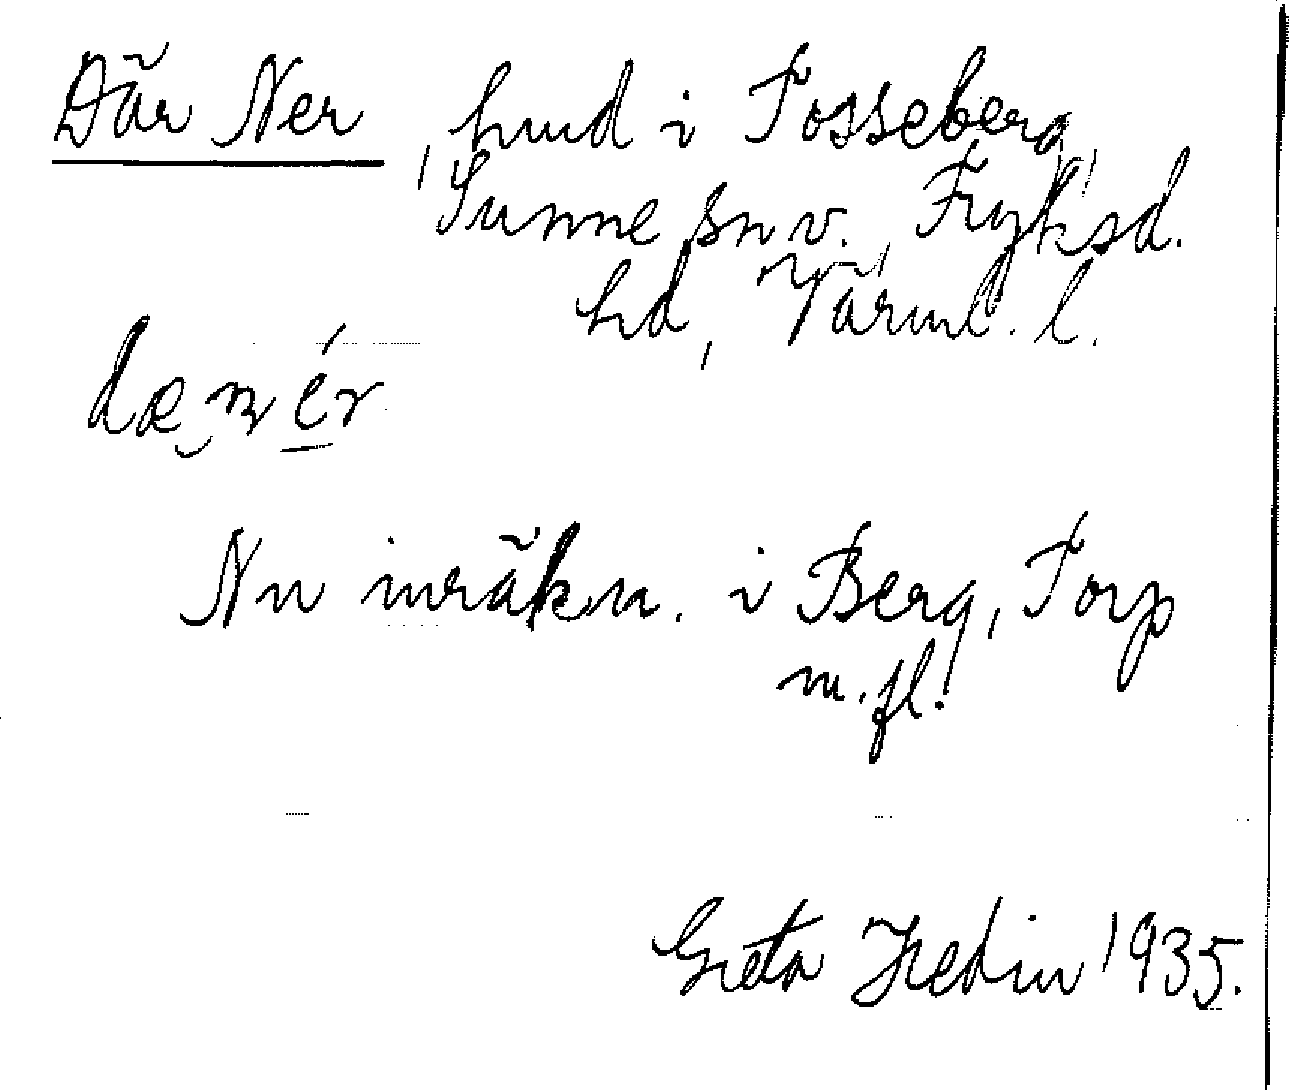 Där Ner, hmd i Tosseberg,
Sunne sn v., Fryksd.
hd, Värml. l.
Nu inräkn. i Berg, Torp
m.fl.
Greta Hedin 1935.